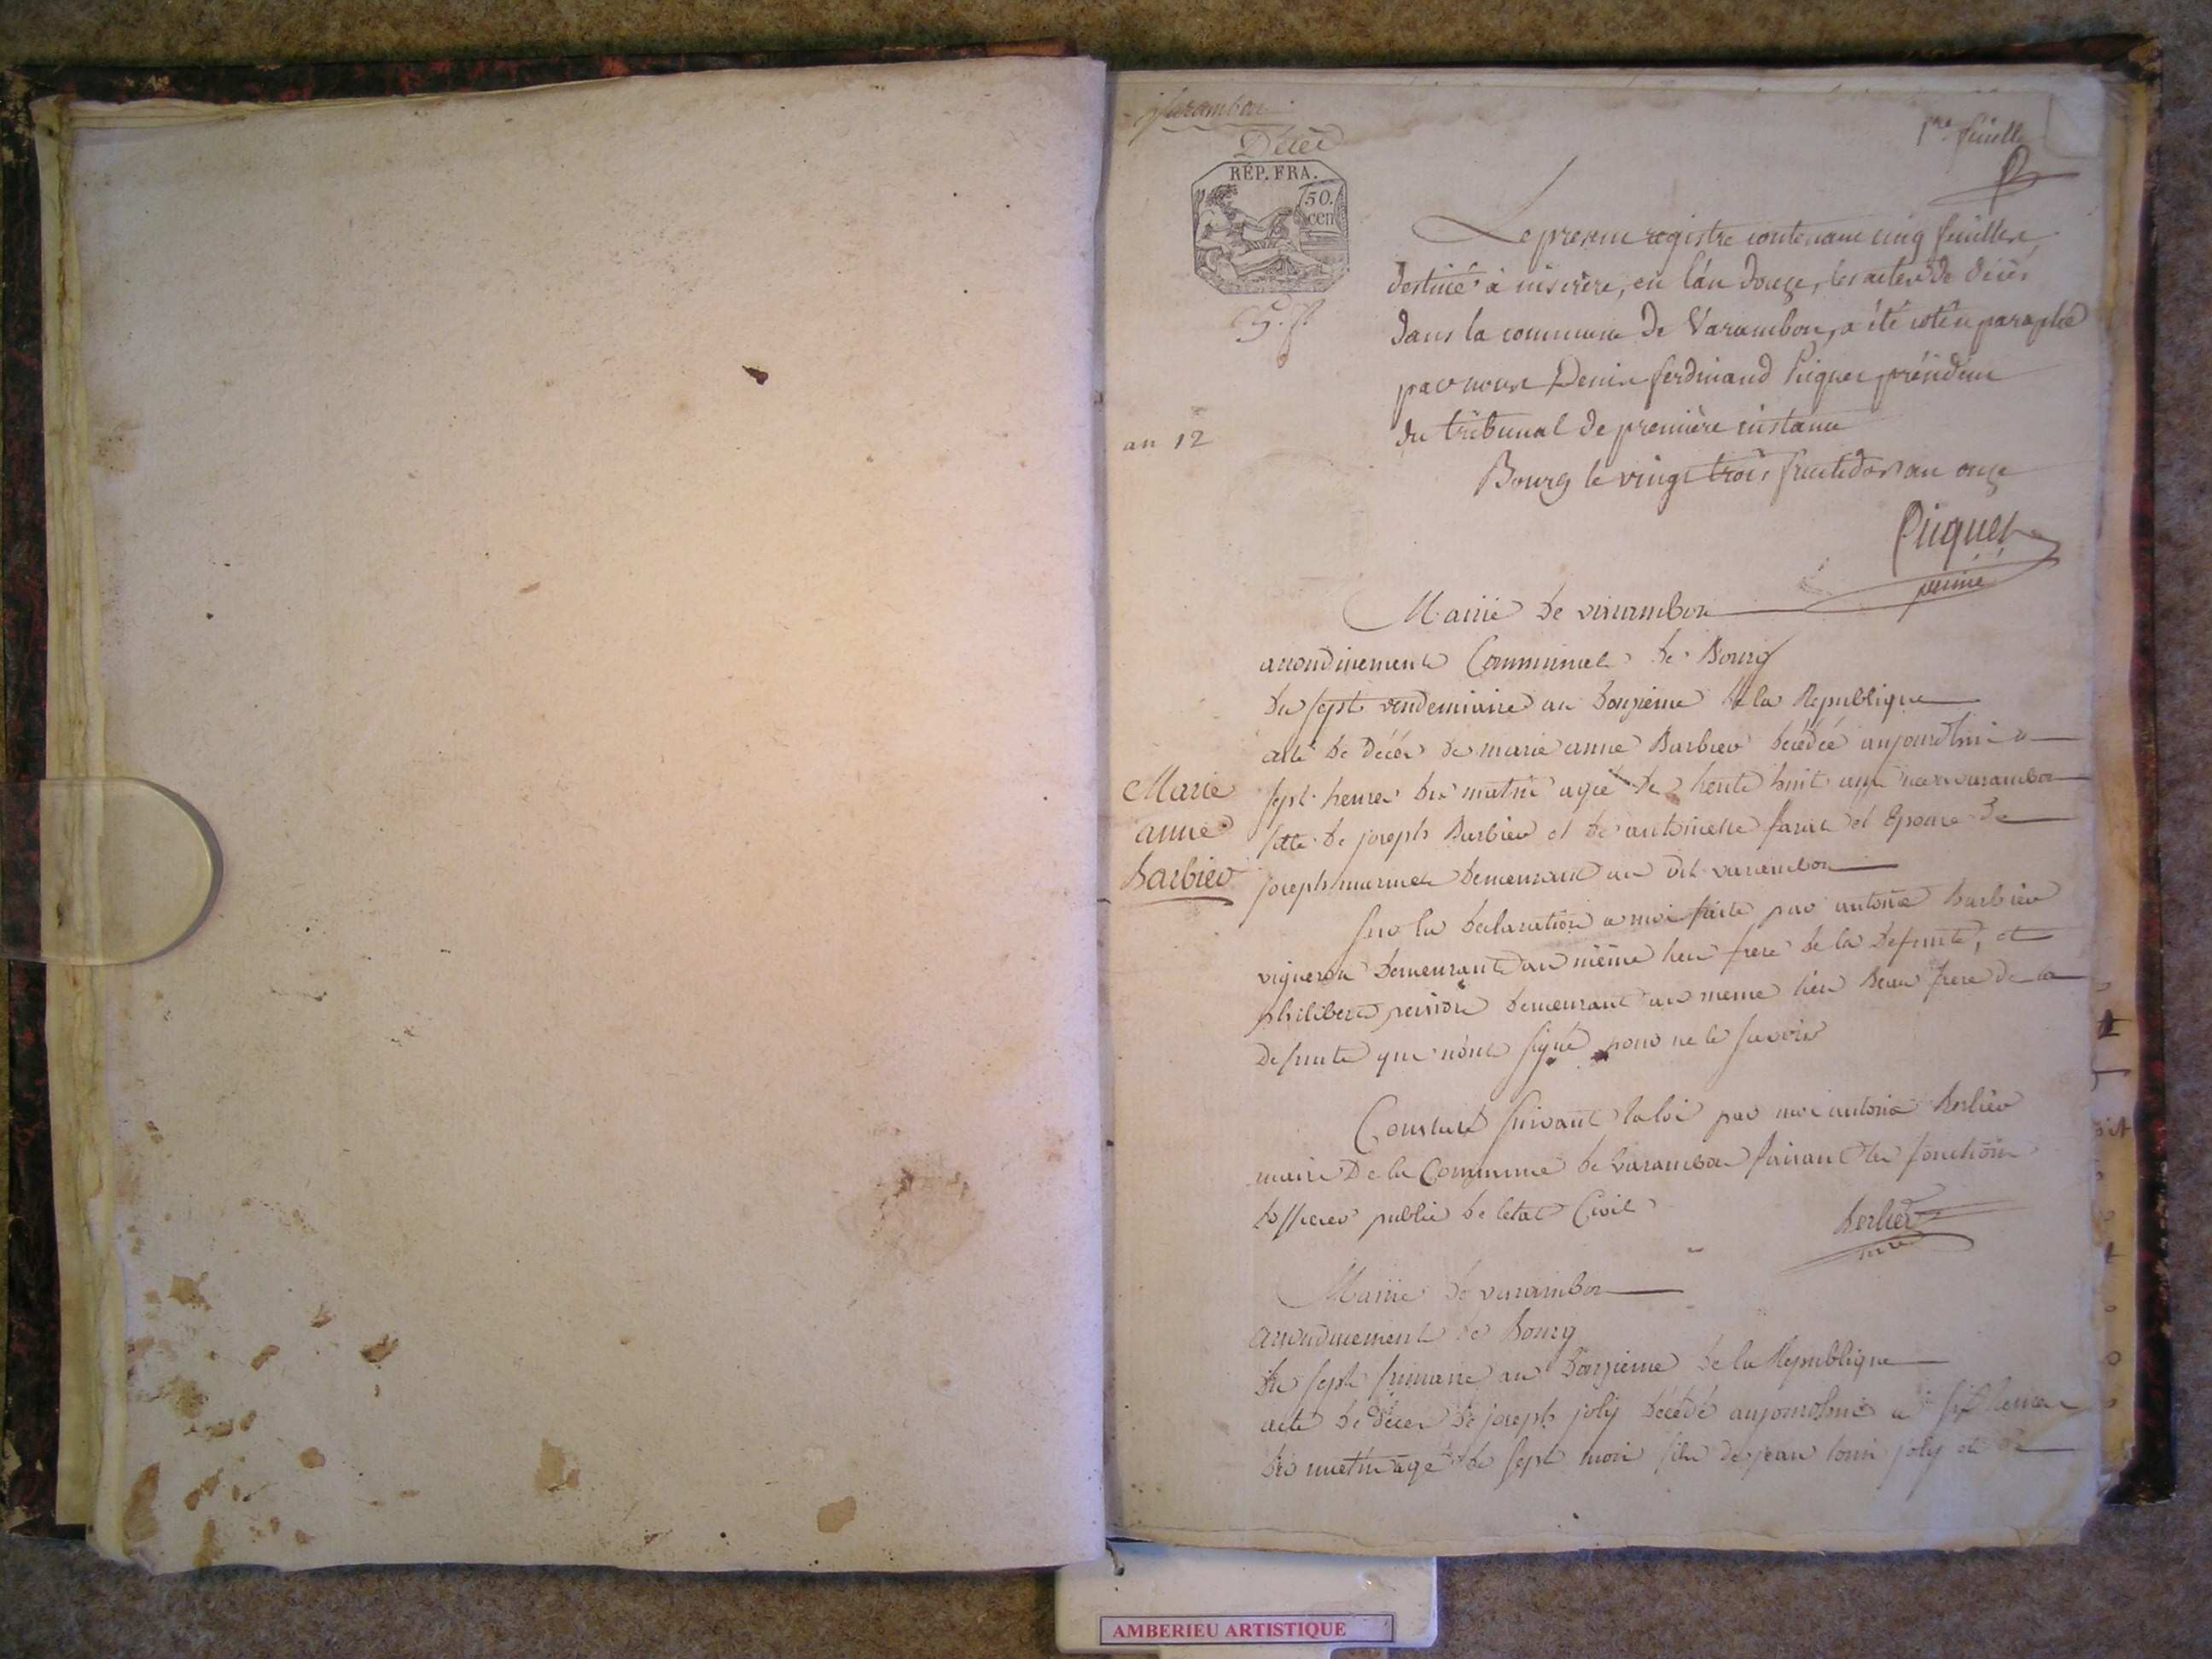 Varambon
Décès
1re feuille
RÉP. FRA.
50.
cen
5. f.
an 12
Le présent registre contenant cinq feuilles
destiné à inscrire, en l'an douze, les actes de décès
dans la commune de Varambon, a été coté et paraphé
par nous Denis ferdinand Picquet président
du tribunal de première instance
Bourg le vingt trois fructidor an onze
Picquet
Mairie de varambon
arrondissement Communal de Bourg
du sept vendemiaire an douzieme de la Republique
acte de Décès de marie anne Barbier décédée aujourdhui a
sept heures du matin agée de trente huit ans née a varambon
fille de joseph Barbier et de antoinette et Epouse de
joseph demeurant au dit varambon
Marie
anne
barbier
sur la declaration a moi faite par antoine Barbier
vigneron demeurant au même lieu frere de la defunte, et
philibert demeurant au meme lieu Beau frere de la
Defunte qui n'ont signé pour ne le savoir
Constaté suivant la loi par moi antoine Berlier
maire De la Commune de Varambon faisant les fonctions
dofficier public de letat Civil
berlier
Mairie de varambon
arrondissement de Bourg
du sept frimaire an douzieme de la Republique
acte de décès de joseph joly décédé aujourdhui a six heures
du matin agé de sept mois fils de jean louis joly et de
AMBERIEU ARTISTIQUE